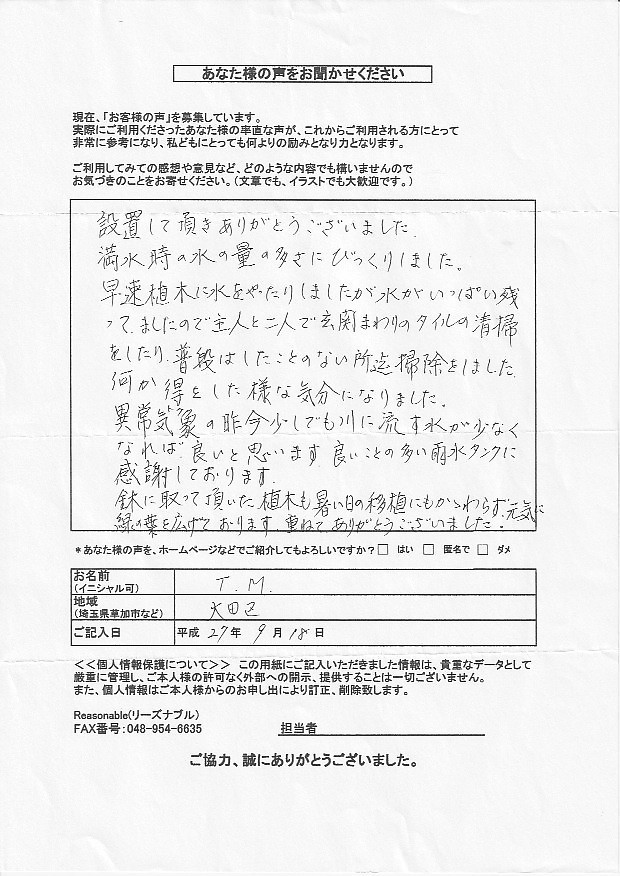 あなた様の声をお聞かせください
現在、「お客様の声」を募集しています。
実際にご利用くださったあなた様の率直な声が、これからご利用される方にとって
非常に参考になり、私どもにとっても何よりの励みとなり力となります。
ご利用してみての感想や意見など、どのような内容でも構いませんので
お気づきのことをお寄せください。（文章でも、イラストでも大歓迎です。）
設置して頂きありがとうございました。
満水時の水の量の多さにびっくりしました。
早速植木に水をやったりしましたが水がいっぱい残
ってましたので主人と二人で玄関まわりのタイルの清掃
をしたり、普段はしたことのない所迄掃除をしました。
何か得をした様な気分になりました。
異常気象の昨今少しでも川に流す水が少なく
なれば良いと思います。良いことの多い雨水タンクに
感謝しております。
鉢に取って頂いた植木も暑い日の移植にもかゝわらず、元気に
緑の葉を広げております。重ねてありがとうございました。
*あなた様の声を、ホームページなどでご紹介してもよろしいですか？□ はい □ 匿名で □ ダメ
お名前
（イニシャル可） T.M.
地域
（埼玉県草加市など） 大田区
ご記入日 平成 27年 9月 18日
＜＜個人情報保護について＞＞ この用紙にご記入いただきました情報は、貴重なデータとして
厳重に管理し、ご本人様の許可なく外部への開示、提供することは一切ございません。
また、個人情報はご本人様からのお申し出により訂正、削除致します。
Reasonable（リーズナブル）
FAX番号：048-954-6635 担当者
ご協力、誠にありがとうございました。